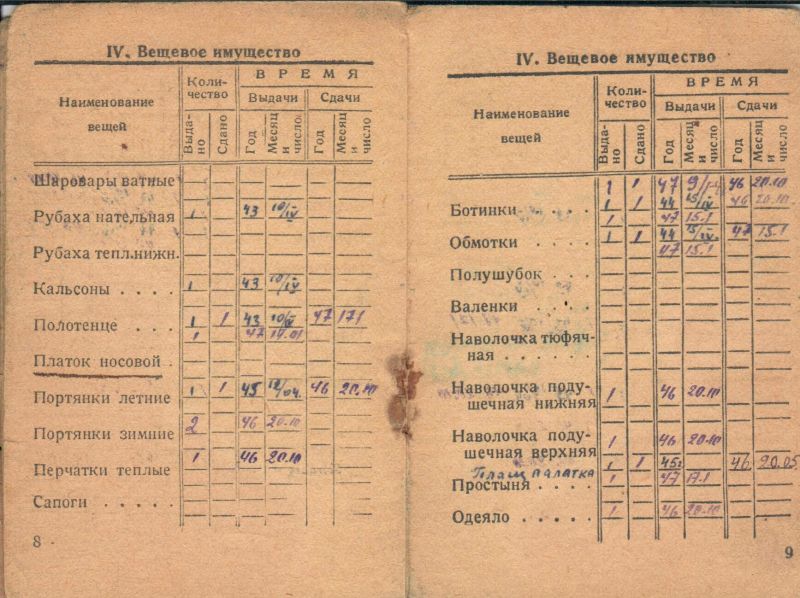 IV. Вещевое имущество
Наименование вещей
Количество
ВРЕМЯ
Выдачи
Сдачи
Выдано
Сдано
Год
Месяц и число.
Год
Месяц и число
Шаровары ватные
Рубаха нательная 1 43 10/IV
Рубаха тепл.нижн.
Кальсоны . . . . 1 43 10/IV
Полотенце . . . 1 1 43 10/IV 47 17.1
1 47 17.01
Платок носовой .
Портянки летние 1 1 45 46 20.10
Портянки зимние 2 46 20.10
Перчатки теплые 1 46 20.10
Сапоги . . . . .
8
IV. Вещевое имущество
Наименование вещей
Количество
ВРЕМЯ
Выдачи
Сдачи
Выдано
Сдано
Год
Месяц и число.
Год
Месяц и число
1 1 47 46 20.10
Ботинки . . . . 1 1 44 15/IV 46 20.10
1 47 15.1
Обмотки . . . . 1 1 44 15/IV. 47 15.1
47 15.1
Полушубок . . .
Валенки . . . .
Наволочка тюфяч-
ная . . . . . .
Наволочка поду-
шечная нижняя 1 46 20.10
Наволочка поду-
шечная верхняя 1 46 20.10
Плащ палатка 1 1 45 46 20.05
Простыня . . . . 1 47 17.1
Одеяло . . . . . 1 46 20.10
9